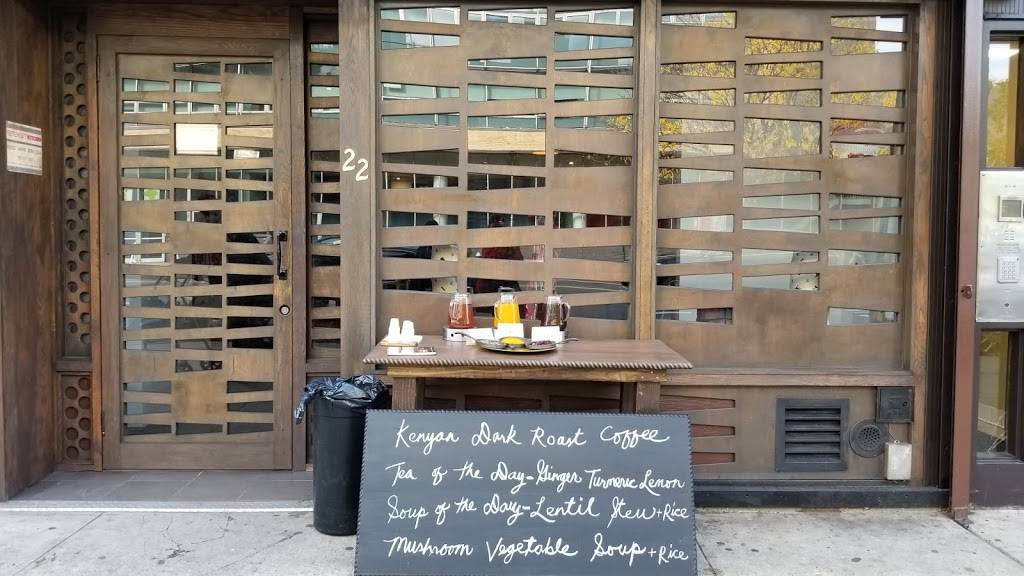 22
Kenyan Dark Roast Coffee
Tea of the Day-Ginger Turmeric Lemon
Soup of the Day-Lentil Stew+Rice
Mushroom Vegetable Soup+Rice